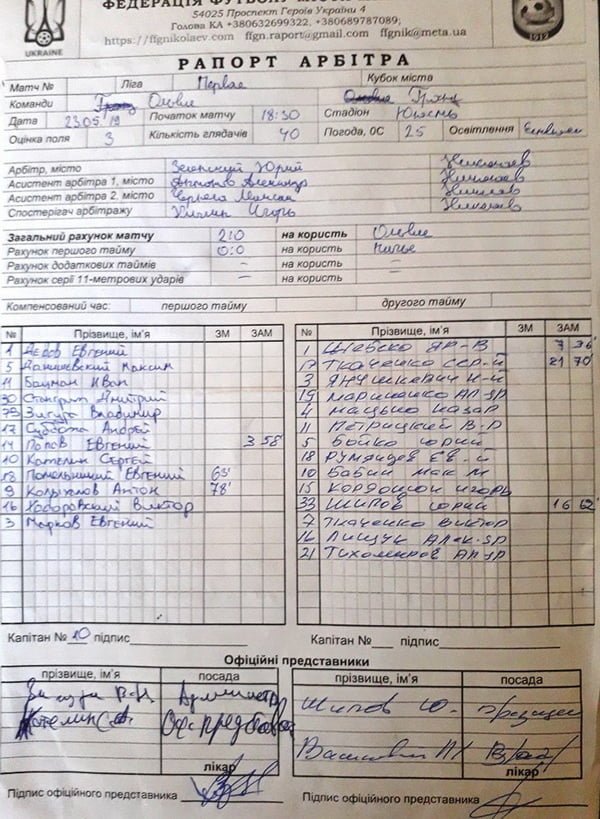 UKRAINE
54025 Проспект Героїв України 4
Голова КА +380632699322, +380689787089;
https://ffgnikolaev.com ffgn.raport@gmail.com ffgnik@meta.ua
1912
РАПОРТ АРБІТРА
Матч № Ліга Первая Кубок міста
Команди Олвия
Дата 23.05.19 Початок матчу 18:30 Стадіон Юность
Оцінка поля 3 Кількість глядачів 40 Погода, 0С 25 Освітлення
Арбітр, місто Юрий Николаев
Асистент арбітра 1, місто Александр Николаев
Асистент арбітра 2, місто Максим Николаев
Спостерігач арбітражу Игорь Николаев
Загальний рахунок матчу 2:0 на користь Олвия
Рахунок першого тайму 0:0 на користь Ничья
Рахунок додаткових таймів – на користь –
Рахунок серії 11-метрових ударів – на користь –
Компенсований час: першого тайму другого тайму
№ Прізвище, ім'я ЗМ ЗАМ
1 Дедов Евгений
5 Данишевский Максим
11 Бауман Иван
30 Дмитрий
79 Засуха Владимир
17 Суббота Андрей
14 Попов Евгений 3 58'
10 Кателин Сергей
18 Помельницкий Евгений 65'
9 Антон 78'
16 Хоборовский Виктор
3 Марков Евгений
№ Прізвище, ім'я ЗМ ЗАМ
1 Шевско ЯР-В 7 36'
17 Ткаченко Сер-й 21 70'
3 Янушкевич Н-й
19 Мариненко Ал-др
4 Мацько Назар
11 Петрицкий В-р
5 Бойко Юрий
18 Румянцев Ев-й
10 Бабий Мак-м
15 Игорь
33 Шипов Юрий 16 62'
7 Ткаченко Виктор
16 Лищук Алек-др
21 Тихомиров Ал-др
Капітан № 10 підпис
Капітан № підпис
Офіційні представники
прізвище, ім'я посада
Засуха В.Н. Администр
Кателин С.А.
лікар
Підпис офіційного представника
прізвище, ім'я посада
Шипов Ю.
Врач
лікар
Підпис офіційного представника